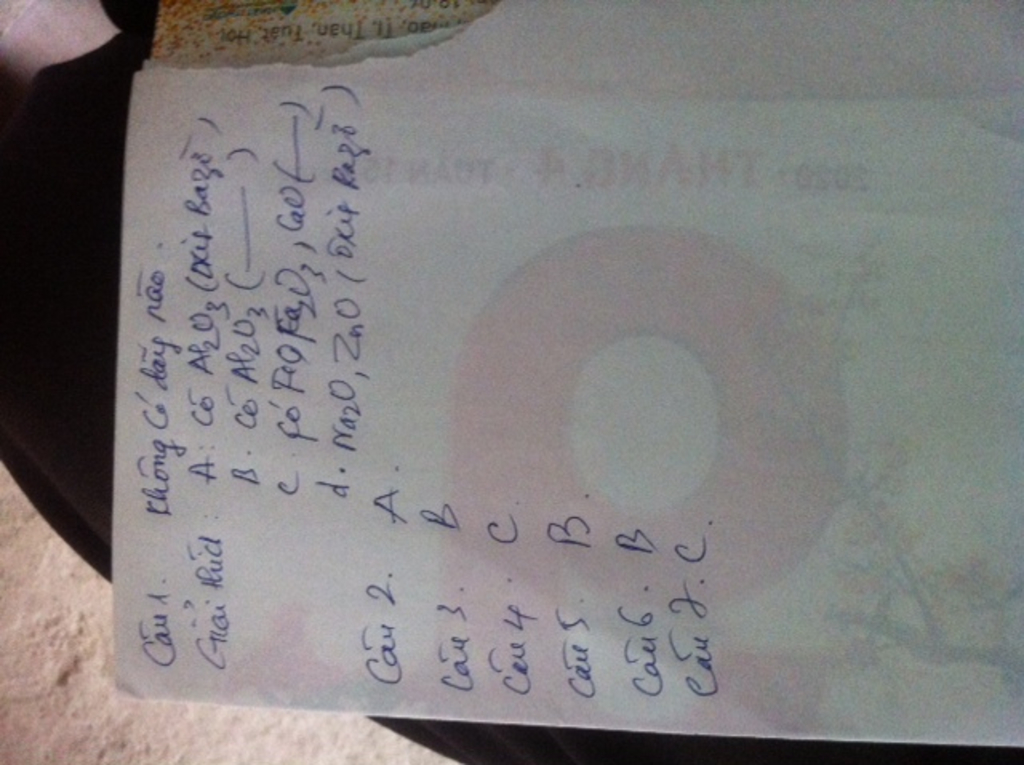 Câu 1. Không có dãy nào.
Giải thích: A: có Al2O3 (oxit Bazơ)
B. có Al2O3 ( )
C. có FeO, Fe2O3, CaO ( )
d. Na2O, ZnO (oxit Bazơ)
Câu 2. A.
Câu 3. B
Câu 4. C.
Câu 5. B.
Câu 6. B
Câu 7. C.
Thân, Tuất, Hợi
2020 · THÁNG 4 · TUẦN 15